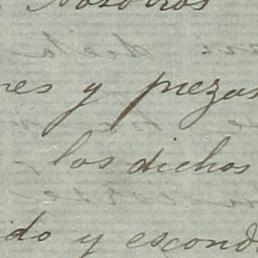 Nosotros
nes y piezas
las dichos
do y escond